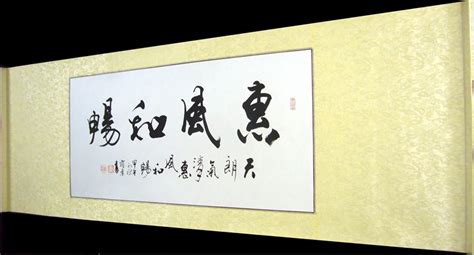 惠風和暢
天朗氣清惠風和暢
甲午